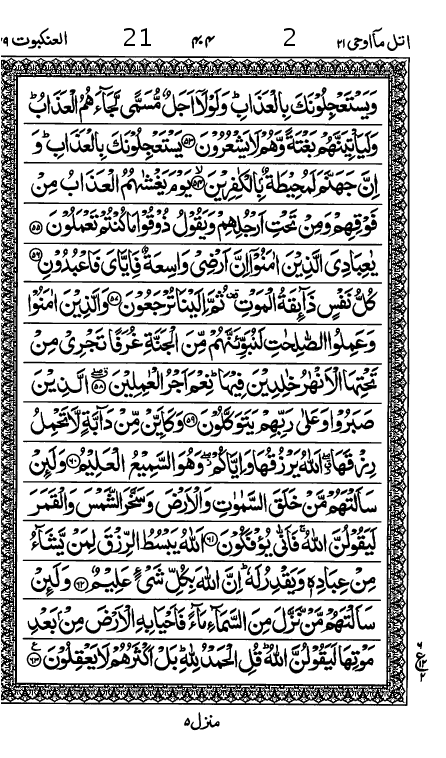 اتل مآاوحی ۲۱ 2 ۴۰۴ 21 العنکبوت ۲۹
وَيَسْتَعْجِلُوْنَكَ بِالْعَذَابِ ؕ وَلَوْلَاۤ اَجَلٌ مُّسَمًّى لَّجَآءَهُمُ الْعَذَابُ ؕ
وَلَيَاْتِيَنَّهُمْ بَغْتَةً وَّهُمْ لَا يَشْعُرُوْنَ ﴿۵۳﴾ يَسْتَعْجِلُوْنَكَ بِالْعَذَابِ ؕ وَ
اِنَّ جَهَنَّمَ لَمُحِيْطَةٌۢ بِالْكٰفِرِيْنَ ۙ﴿۵۴﴾ يَوْمَ يَغْشٰىهُمُ الْعَذَابُ مِنْ
فَوْقِهِمْ وَمِنْ تَحْتِ اَرْجُلِهِمْ وَيَقُوْلُ ذُوْقُوْا مَا كُنْتُمْ تَعْمَلُوْنَ ﴿۵۵﴾
يٰعِبَادِيَ الَّذِيْنَ اٰمَنُوْۤا اِنَّ اَرْضِيْ وَاسِعَةٌ فَاِيَّايَ فَاعْبُدُوْنِ ﴿۵۶﴾
كُلُّ نَفْسٍ ذَآئِقَةُ الْمَوْتِ ۟ ثُمَّ اِلَيْنَا تُرْجَعُوْنَ ﴿۵۷﴾ وَالَّذِيْنَ اٰمَنُوْا
وَعَمِلُوا الصّٰلِحٰتِ لَنُبَوِّئَنَّهُمْ مِّنَ الْجَنَّةِ غُرَفًا تَجْرِيْ مِنْ
تَحْتِهَا الْاَنْهٰرُ خٰلِدِيْنَ فِيْهَا ؕ نِعْمَ اَجْرُ الْعٰمِلِيْنَ ﴿۵۸﴾ الَّذِيْنَ
صَبَرُوْا وَعَلٰى رَبِّهِمْ يَتَوَكَّلُوْنَ ﴿۵۹﴾ وَكَاَيِّنْ مِّنْ دَآبَّةٍ لَّا تَحْمِلُ
رِزْقَهَا ۖ اَللّٰهُ يَرْزُقُهَا وَاِيَّاكُمْ ۖ وَهُوَ السَّمِيْعُ الْعَلِيْمُ ﴿۶۰﴾ وَلَئِنْ
سَاَلْتَهُمْ مَّنْ خَلَقَ السَّمٰوٰتِ وَالْاَرْضَ وَسَخَّرَ الشَّمْسَ وَالْقَمَرَ
لَيَقُوْلُنَّ اللّٰهُ ۚ فَاَنّٰى يُؤْفَكُوْنَ ﴿۶۱﴾ اَللّٰهُ يَبْسُطُ الرِّزْقَ لِمَنْ يَّشَآءُ
مِنْ عِبَادِهٖ وَيَقْدِرُ لَهٗ ؕ اِنَّ اللّٰهَ بِكُلِّ شَيْءٍ عَلِيْمٌ ﴿۶۲﴾ وَلَئِنْ
سَاَلْتَهُمْ مَّنْ نَّزَّلَ مِنَ السَّمَآءِ مَآءً فَاَحْيَا بِهِ الْاَرْضَ مِنْۢ بَعْدِ
مَوْتِهَا لَيَقُوْلُنَّ اللّٰهُ ؕ قُلِ الْحَمْدُ لِلّٰهِ ؕ بَلْ اَكْثَرُهُمْ لَا يَعْقِلُوْنَ ﴿۶۳﴾
منزل ۵